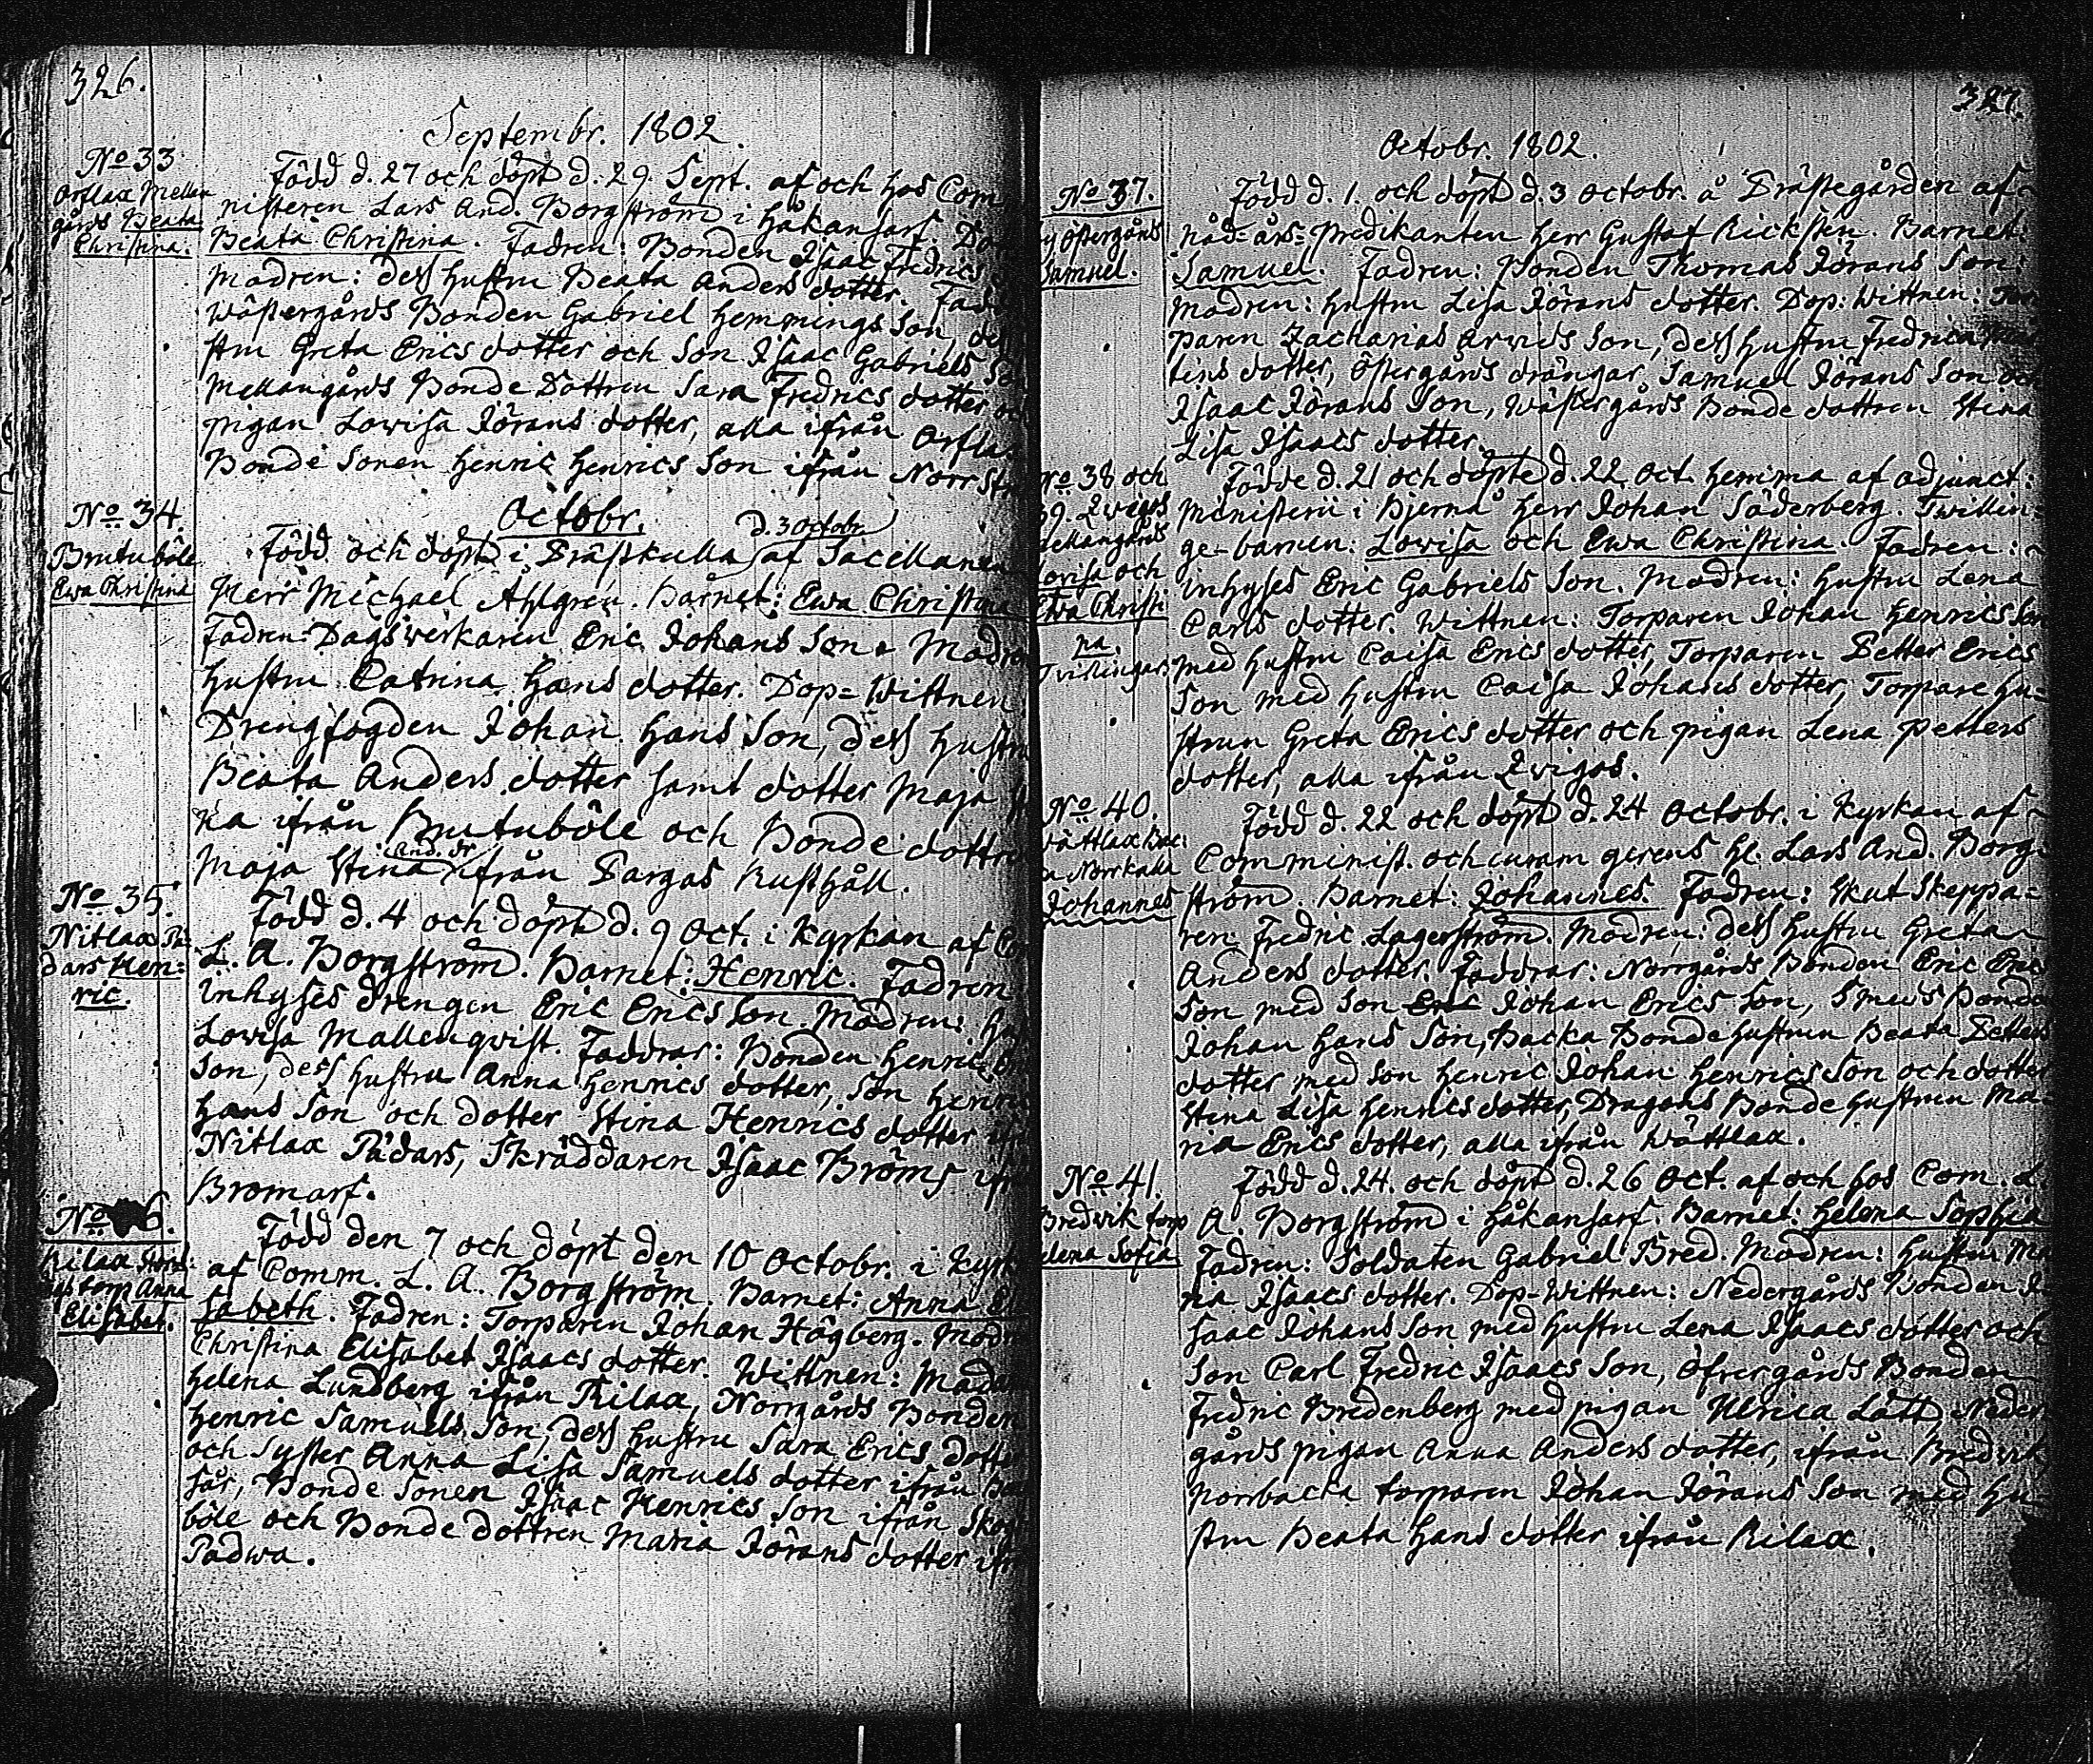 326.
Septembr. 1802.
No 33
Orslax Mellan
gårds Beata
Christina.
Född d. 27 och döpt d. 29. Sept. af och hos Com
nisteren Lars And. Borgström i Håkansarf
Beata Christina. Fadren: Bonden Isaac Fredrics
Modren: dess hustru Beata Anders dotter.
Wästergårds Bonden Gabriel Hemmings Son,
stru Greta Erics dotter och Son Isaac Gabriels
Mellangårds Bonde Dottren Sara Fredrics dotter
pigan Lowisa Jörans dotter, alla ifrån Orsla
Bonde Sonen Henric Henrics Son ifrån Norr
Octobr.
No 34.
Brutuböle
Ewa Christina
d. 3 octobr.
Född och döpt i Prästkulla af Sacellanen
Herr Michael Ahlgren. Barnet: Ewa Christina
Fadren: Dagsverkaren Eric Johans Son. Modren
Hustru Catrina Hans dotter. Dop-Wittnen
Drengfogden Johan Hans Son, dess hustru
Beata Anders dotter samt dotter Maja
na ifrån Brutuböle och Bonde dottren
And. dr
Maja Stina ifrån Pargas Rusthåll.
No 35.
Nitlax
dars Hen-
ric.
Född d. 4 och döpt d. 9 Oct. i Kyrkan af
L. A. Borgström. Barnet: Henric. Fadren
Inhyses drengen Eric Erics Son. Modren:
Lowisa Mallenqvist. Faddrar: Bonden Henric
Son, dess hustru Anna Henrics dotter, Son Henric
Hans Son och dotter Stina Henrics dotter
Nitlax Pädars, Skräddaren Isaac Bröms
Bromarf.
No 6.
Rilax
torp Anna
Elisabet.
Född den 7 och döpt den 10 Octobr. i Kyrk
af Comm. L. A. Borgström. Barnet: Anna
sabeth. Fadren: Torparen Johan Högberg.
Christina Elisabet Isaacs dotter. Wittnen: Madam
Helena Lundberg ifrån Rilax, Norrgårds Bonden
Henric Samuels Son, dess hustru Sara Erics dotter
och Syster Anna Lisa Samuels dotter ifrån
sår, Bonde Sonen Isaac Henrics Son ifrån Skog
böle och Bonde dottren Maria Jörans dotter
Padwa.
327.
Octobr. 1802.
No 37.
Östergårds
Samuel.
Född d. 1. och döpt d. 3 Octobr. å Prästegården af
Nåd-års-Predikanten Herr Gustaf Ricksten. Barnet:
Samuel. Fadren: Bonden Thomas Jörans Son:
Modren: hustru Lisa Jörans dotter. Dop: Wittnen: Tor
paren Zacharias Arvids Son, dess hustru Fredrica
tins dotter, Östergårds drängar, Samuel Jörans Son och
Isaac Jörans Son, Wästergårds Bonde dottren Stina
Lisa Isaacs dotter.
No 38 och
39. Qvigos
Mellangårds
Lovisa och
Ewa Christi
na.
Tvillingar.
Födde d. 21 och döpte d. 22 Oct. hemma af adjunct:
Ministerii i Bjernå Herr Johan Söderberg. Twillin-
ge-barnen: Lowisa och Ewa Christina. Fadren:
Inhyses Eric Gabriels Son. Modren: hustru Lena
Carls dotter. Wittnen: Torparen Johan Henrics Son
med hustru Caisa Erics dotter, Torparen Petter Erics
Son med hustru Caisa Johans dotter, Torpare hu-
strun Greta Erics dotter och pigan Lena Petters
dotter, alla ifrån Qvigos.
No 40.
Wättlax Bac-
ka Norrkulla
Johannes
Född d. 22 och döpt d. 24 Octobr. i Kyrkan af
Comminist. och curam gerens Hl. Lars And. Borg-
ström. Barnet: Johannes. Fadren: Skut Skeppa-
ren Fredric Lagerström. Modren: dess hustru Greta
Anders dotter. Faddrar: Norrgårds Bonden Eric Erics
Son med Son Eric Johan Erics Son, Smeds Bonden
Johan Hans Son, Backa Bonde hustrun Beata Petters
dotter med Son Henric Johan Henrics Son och dotter
Stina Lisa Henrics dotter, Dragans Bonde hustrun Ma-
ria Erics dotter, alla ifrån Wättlax.
No 41.
Bredvik torp
Helena Sofia
Född d. 24. och döpt d. 26 Oct. af och hos Com. L.
A. Borgström i Håkansarf. Barnet: Helena Sophia
Fadren: Soldaten Gabriel Bred. Modren: Hustru Ma
ria Isaacs dotter. Dop-Wittnen: Nedergårds Bonden I-
saac Johans Son med hustru Lena Isaacs dotter och
Son Carl Fredric Isaacs Son, Öfvergårds Bonden
Fredric Bredenberg med pigan Ulrica Lätt, Neder
gårds pigan Anna Anders dotter, ifrån Bredvik
Porrbacka torparen Johan Jörans Son med hu-
stru Beata Hans dotter ifrån Rilax.